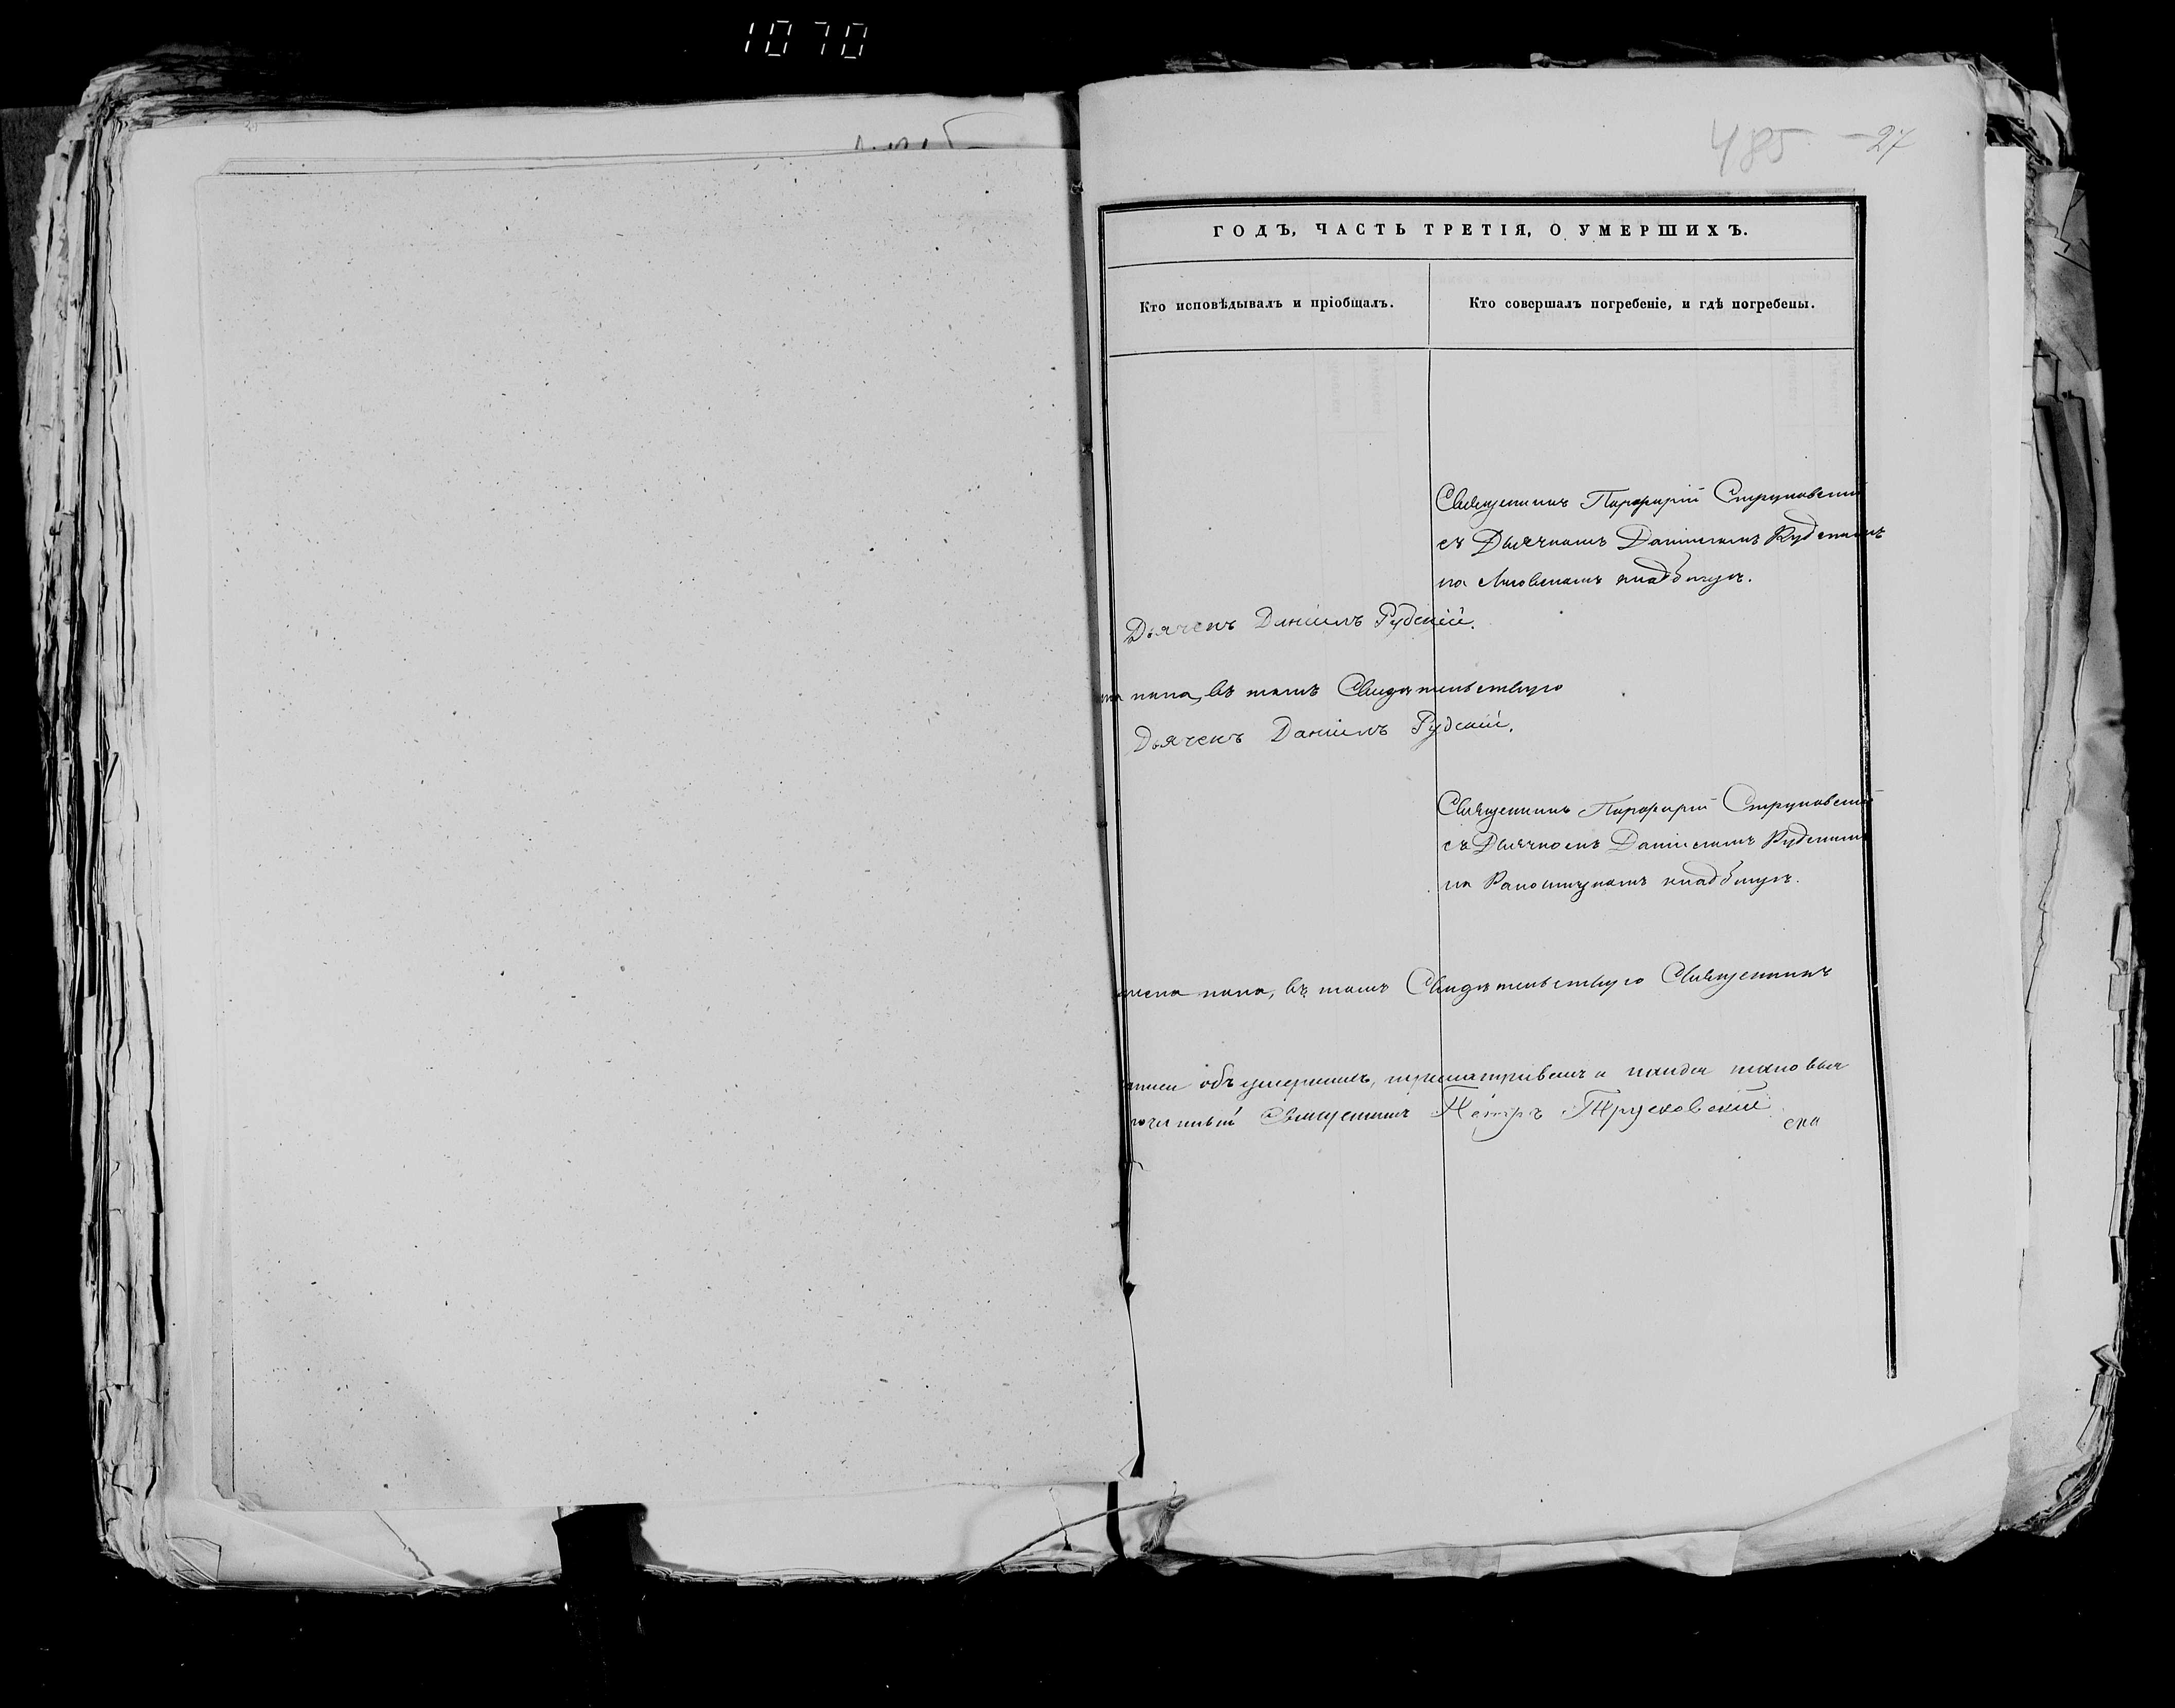 1070
485 - 27
ГОДЪ, ЧАСТЬ ТРЕТІЯ, О УМЕРШИХЪ.
Кто исповѣдывалъ и пріобщалъ.
Кто совершалъ погребеніе, и гдѣ погребены.
Священникъ Порфирій Струковскій
съ Дьячкомъ Даніиломъ Рудскимъ
на кладбищѣ.
Дьячекъ Даніилъ Рудскій.
въ томъ Свидѣтельствую
Дьячекъ Даніилъ Рудскій.
Священникъ Порфирій Струковскій
съ Дьячкомъ Даніиломъ Рудскимъ
на кладбищѣ.
въ томъ Свидѣтельствую Священникъ
объ умершихъ,
Священникъ Петръ